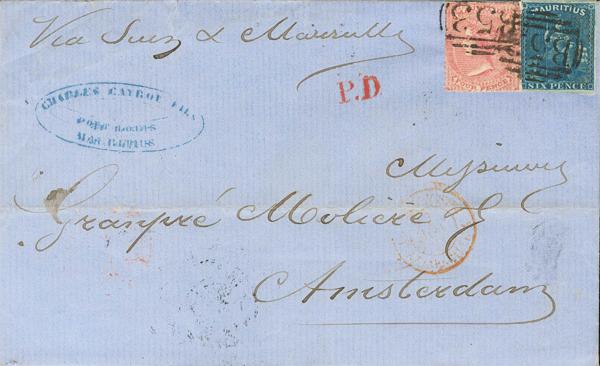 Via Suez & Marseille
B53
B53
MAURITIUS
SIX PENCE
P.D
CHARLES CAYROU FILS
PORT LOUIS
MAURITIUS
Messieurs
Granpré Molière &
Amsterdam